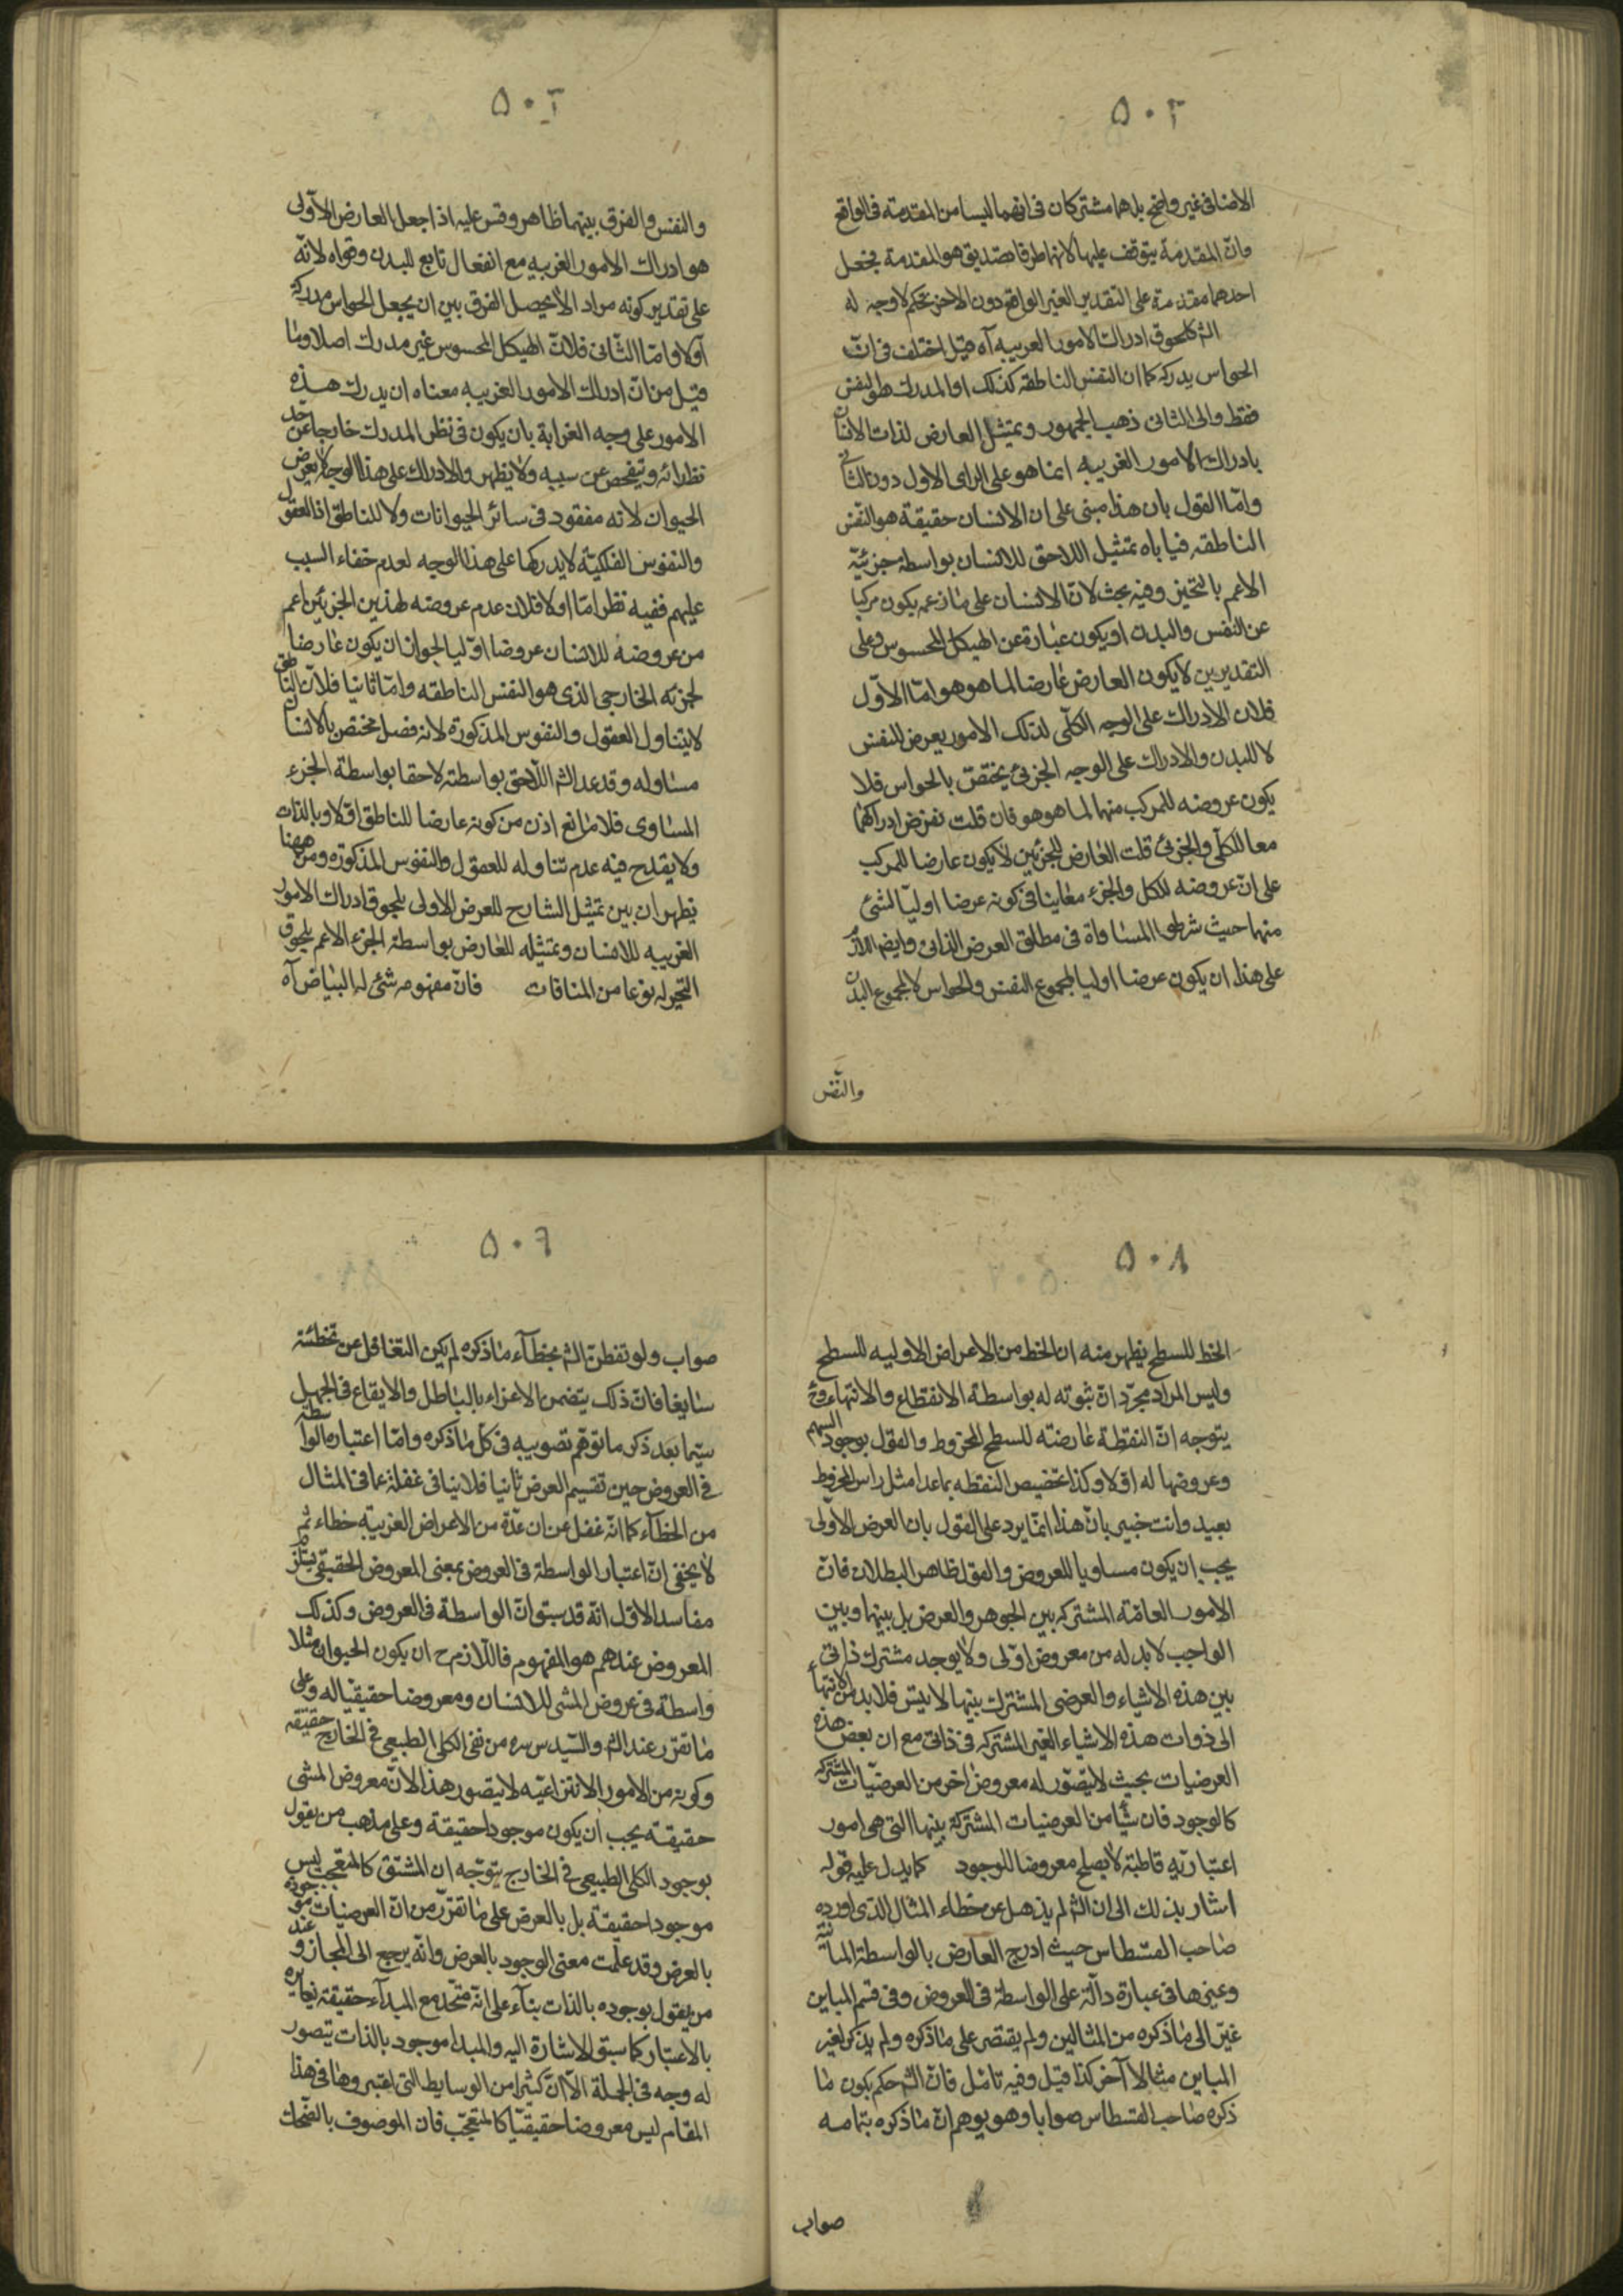 ٥٠٢
الاضافى غير واضح بل هما مشتركان فى انهما ليسا من المقدمة فى الواقع
وانّ المقدمة يتوقف عليها لانهما طرفا تصديق هو المقدمة فجعل
احدهما مقدمة على التقدير الغير الواقع دون الاخر تحكم لا وجه له
الش كلحوق ادراك الامور الغريبه آه قيل اختلف فى انّ
الحواس يدركه كما ان النفس الناطقه كذلك او المدرك هو النفس
فقط والى الثانى ذهب الجمهور وتمثيل العارض لذات الانسان
بادراك الامور الغريبه انما هو على الراى الاول دون الثانى
وامّا القول بان هذا مبنى على ان الانسان حقيقة هو النفس
الناطقه فياباه تمثيل اللاحق للانسان بواسطة جزئيّه
الاعم بالتحيز وفيه بحث لانّ الانسان على ما زعمه يكون مركبا
عن النفس والبدن او يكون عبارة عن الهيكل المحسوس وعلى
التقديرين لا يكون العارض عارضا لما هو هو امّا الاوّل
فلان الادراك على الوجه الكلّى لذلك الامور يعرض للنفس
لا للبدن والادراك على الوجه الجزئى يختص بالحواس فلا
يكون عروضه للمركب منهما لما هو هو فان قلت نفرض ادراكهما
معا للكلّى والجزئى قلت العارض للجزئين لا يكون عارضا للمركب
على انّ عروضه للكل والجزء معا ينافى كونه عرضا اوليّا لشئ
منها حيث شرطوا المساواة فى مطلق العرض الذاتى وايضا اللازم
على هذا ان يكون عرضا اوليا لمجموع النفس والحواس لا لمجموع البدن
والنّفس
٥٠٣
والنفس والفرق بينهما ظاهر وقس عليه اذا جعل العارض الاوّلى
هو ادراك الامور الغريبه مع انفعال تابع للبدن وقواه لانّه
على تقدير كونه مرادا لا يحصل الفرق بين ان يجعل الحواس مدركه
اولا وامّا الثّانى فلانّ الهيكل المحسوس غير مدرك اصلا وما
قيل من انّ ادراك الامور الغريبه معناه ان يدرك هذه
الامور على وجه الغرابة بان يكون فى نظر المدرك خارجا عن حد
نظرائه ويتفحص عن سببه ولا يظهر والادراك على هذا الوجه لا يعرض
الحيوان لانه مفقود فى سائر الحيوانات ولا للناطق اذ العقول
والنفوس الفلكيّة لا يدركها على هذا الوجه لعدم خفاء السبب
عليهم ففيه نظر امّا اولا فلان عدم عروضه لهذين الجزئين اعم
من عروضه للانسان عروضا اوّليا لجواز ان يكون عارضا
لجزئه الخارجى الذى هو النفس الناطقه وامّا ثانيا فلانّ الناطق
لا يتناول العقول والنفوس المذكورة لانه فصل مختص بالانسان
مساو له وقد عد الش اللّاحق بواسطته لاحقا بواسطة الجزء
المساوى فلا مانع اذن من كونه عارضا للناطق اوّلا وبالذات
ولا يقدح فيه عدم تناوله للعقول والنفوس المذكورة ومن ههنا
يظهر ان بين تمثيل الشارح للعرض الاولى بلحوق ادراك الامور
الغريبه للانسان وتمثيله للعارض بواسطة الجزء الاعم بلحوق
التحيز له نوعا من المنافات فانّ مفهومه شئ له البياض آه
٥٠٨
الخط للسطح يظهر منه ان الخط من الاعراض الاوليه للسطح
وليس المراد مجرّد انّ ثبوته له بواسطة الانقطاع والانتهاء وح
يتوجه انّ النقطة عارضته للسطح المخروط والقول بوجود السهم
وعروضها له اوّلا وكذا تخصيص النقطه بما عدا مثل راس المخروط
بعيد وانت خبير بانّ هذا انّما يرد على القول بان العرض الاوّلى
يجب ان يكون مساويا للعروض والقول ظاهر البطلان فانّ
الامور العامّة المشتركه بين الجوهر والعرض بل بينهما وبين
الواجب لا بد له من معروض اوّلى ولا يوجد مشترك ذاتى
بين هذه الاشياء والعرضى المشترك بينها لا يتبين فلا بد من الانتهاء
الى ذوات هذه الاشياء الغير المشتركه فى ذاتى مع ان بعض هذه
العرضيات بحيث لا يتصوّر له معروض اخر من العرضيّات المشتركه
كالوجود فان شيأ من العرضيات المشتركة بينها التى هى امور
اعتباريّه قاطبة لا يصلح معروضا للوجود كما يدل عليه قوله
اشار بذلك الى ان الش لم يذهل عن خطاء المثال الذى اورده
صاحب القسطاس حيث ادرج العارض بالواسطة المباينة
وغيرها فى عبارة دالّة على الواسطة فى العروض وفى قسم المباين
غيّر الى ما ذكره من المثالين ولم يقتصر على ما ذكره ولم يذكر لغير
المباين مثالا آخر كذا قيل وفيه تامّل فانّ الش حكم بكون ما
ذكره صاحب القسطاس صوابا وهو يوهم انّ ما ذكره بتمامه
صواب
٥٠٩
صواب ولو تفطن الش بخطآء ما ذكره لم يكن التغافل عن تخطئته
سايغا فانّ ذلك يتضمن الاغراء بالباطل والايقاع فى الجهل
سيّما بعد ذكر ما توهّم تصويبه فى كل ما ذكره وامّا اعتباره الواسطه
فى العروض حين تقسيم العرض ثانيا فلا ينافى غفلة عما فى المثال
من الخطآء كما انّه غفل عن ان عدّه من الاعراض الغريبة خطاء ثم
لا يخفى انّ اعتبار الواسطة فى العروض بمعنى المعروض الحقيقى يستلزم
مفاسد الاوّل انّه قد سبق انّ الواسطة فى العروض وكذلك
المعروض عندهم هو المفهوم فاللّازم ح ان يكون الحيوان مثلا
واسطة فى عروض المشى للانسان ومعروضا حقيقيا له وعلى
ما تقرّر عند الش والسّيد س سره من نفى الكلى الطبيعى فى الخارج حقيقه
وكونه من الامور الانتزاعيّه لا يتصور هذا لانّ معروض المشى
حقيقة يجب ان يكون موجودا حقيقة وعلى مذهب من يقول
بوجود الكلى الطبيعى فى الخارج يتوجّه ان المشتق كالمتعجب ليس
موجودا حقيقة بل بالعرض على ما تقرّر من انّ العرضيات موجوده
بالعرض وقد علمت معنى الوجود بالعرض وانّه يرجع الى المجاز وعند
من يقول بوجوده بالذات بنآء على انّه متّحد مع المبدآء حقيقة يغايره
بالاعتبار كما سبق الاشارة اليه والمبدا موجود بالذات يتصور
له وجه فى الجملة الّا انّ كثيرا من الوسايط التى اعتبروها فى هذا
المقام ليس معروضا حقيقيّا كالمتعجّب فان الموصوف بالضّحك